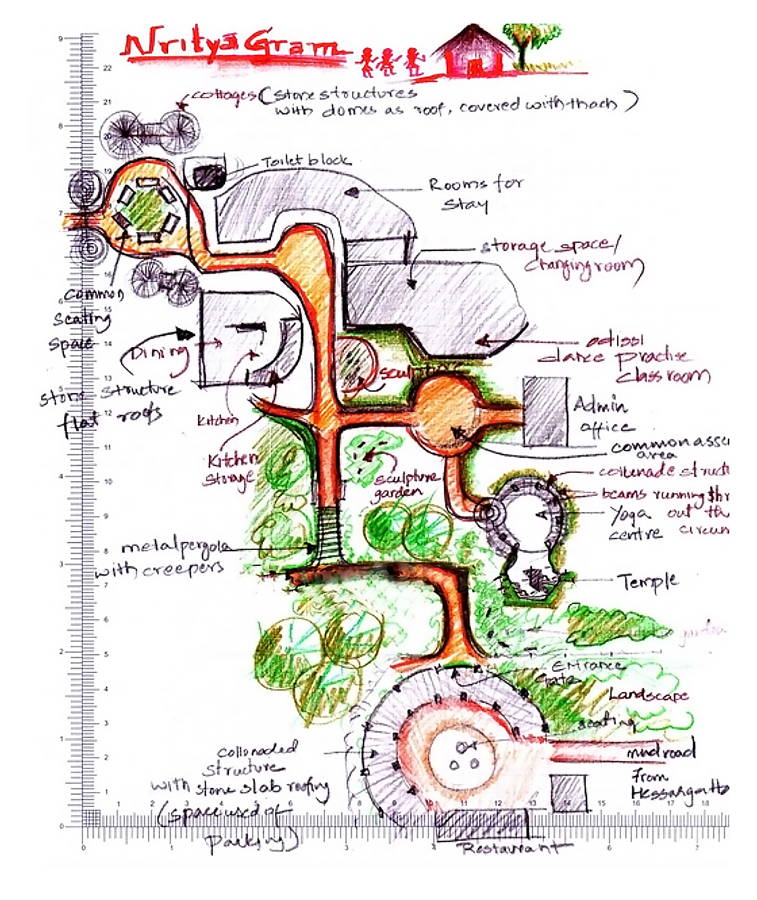 Nritya Gram
cottages (stone structures
with domes as roof, covered with thach)
Toilet block
Rooms for
stay
storage space/
changing room
common
seating
space
Dining
stone structure
flat roofs
kitchen
Kitchen
storage
sculpture
odissi
dance practise
class room
Admin
office
common asse
area
sculpture
garden
collenade struct
beams running thr
out th
circum
Yoga
centre
metal pergola
with creepers
Temple
garden
Entrance
Gate
Landscape
seating
collonaded
structure
with stone slab roofing
(space used of
parking)
mud road
from
Hessargatta
Restaurant